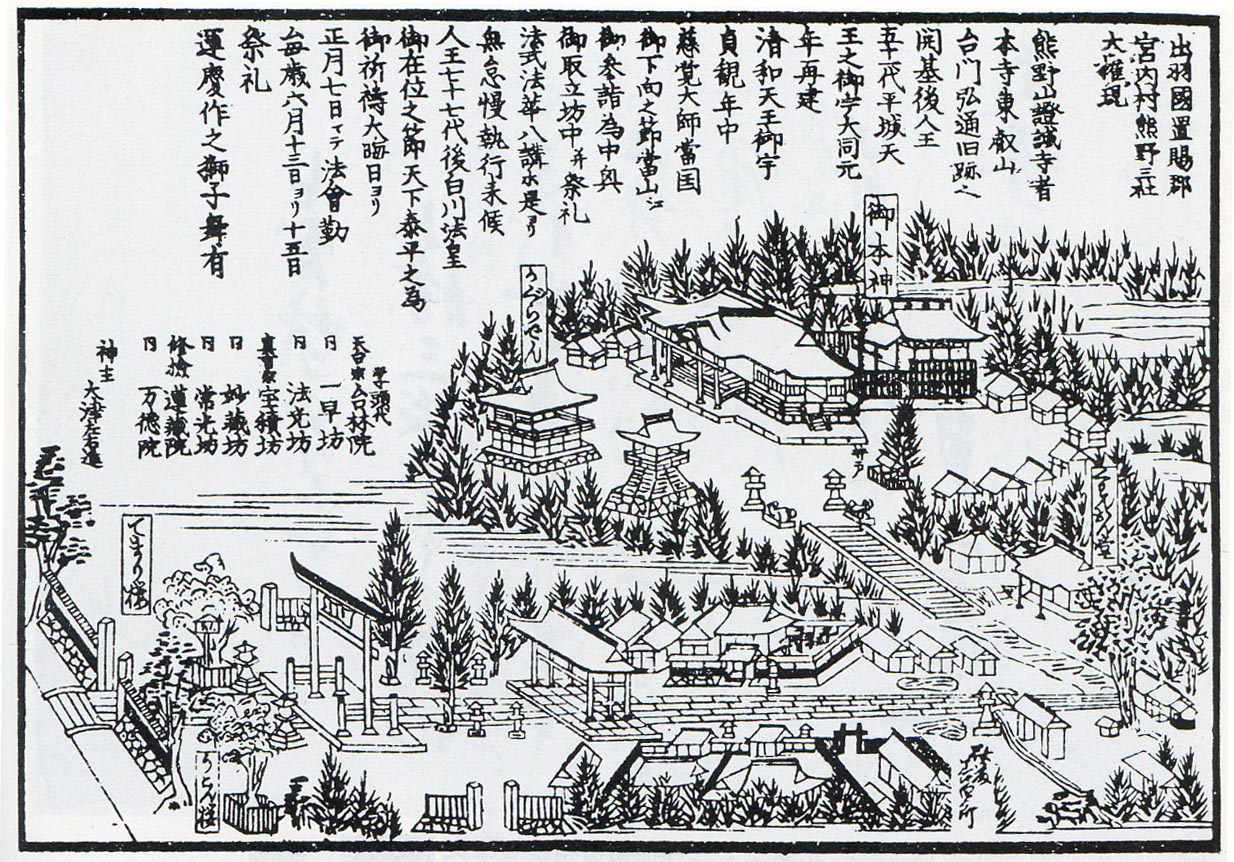 出羽國置賜郡
宮内村熊野三社
大權現
熊野山證誠寺者
本寺東叡山
台門弘通旧跡之
開基後人王
五十一代平城天
王之御宇大同元
年再建
清和天王御宇
貞観年中
慈覚大師當国
御下向之節當山江
御参詣為中興
御取立坊中并祭礼
法式法華八講水是ヨリ
無怠慢執行来候
人王七十七代後白川法皇
御在位之節天下泰平之為
御祈祷大晦日ヨリ
正月七日マテ法會勤
毎歳六月十三日ヨリ十五日
祭礼
運慶作之獅子舞有
学頭代
天台宗台林院
同 一早坊
同 法光坊
真言宗宝積坊
同 妙蔵坊
同 常光坊
修験 蓮蔵院
同 万徳院
神主
御本神
井戸